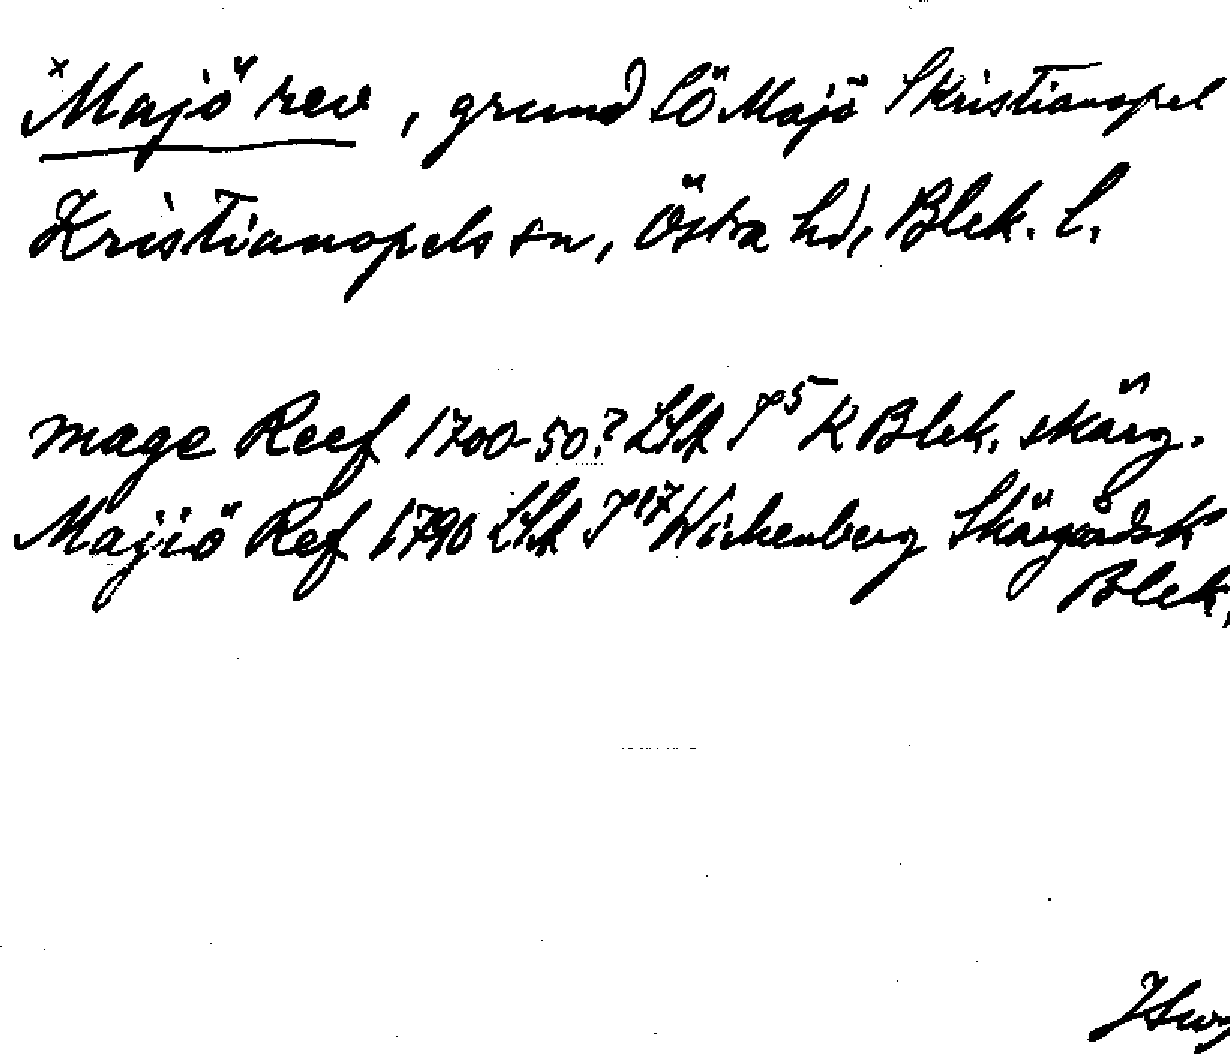 × Majö rev, grund SÖ Majö S Kristianopel
Kristianopels sn, Östra hd, Blek. l.
Mage Reef 1700-50? LSA 75 K Blek. skärg.
Majiö Ref 1790 LSA 717 Wirkenberg Skärgårdsk
Blek.